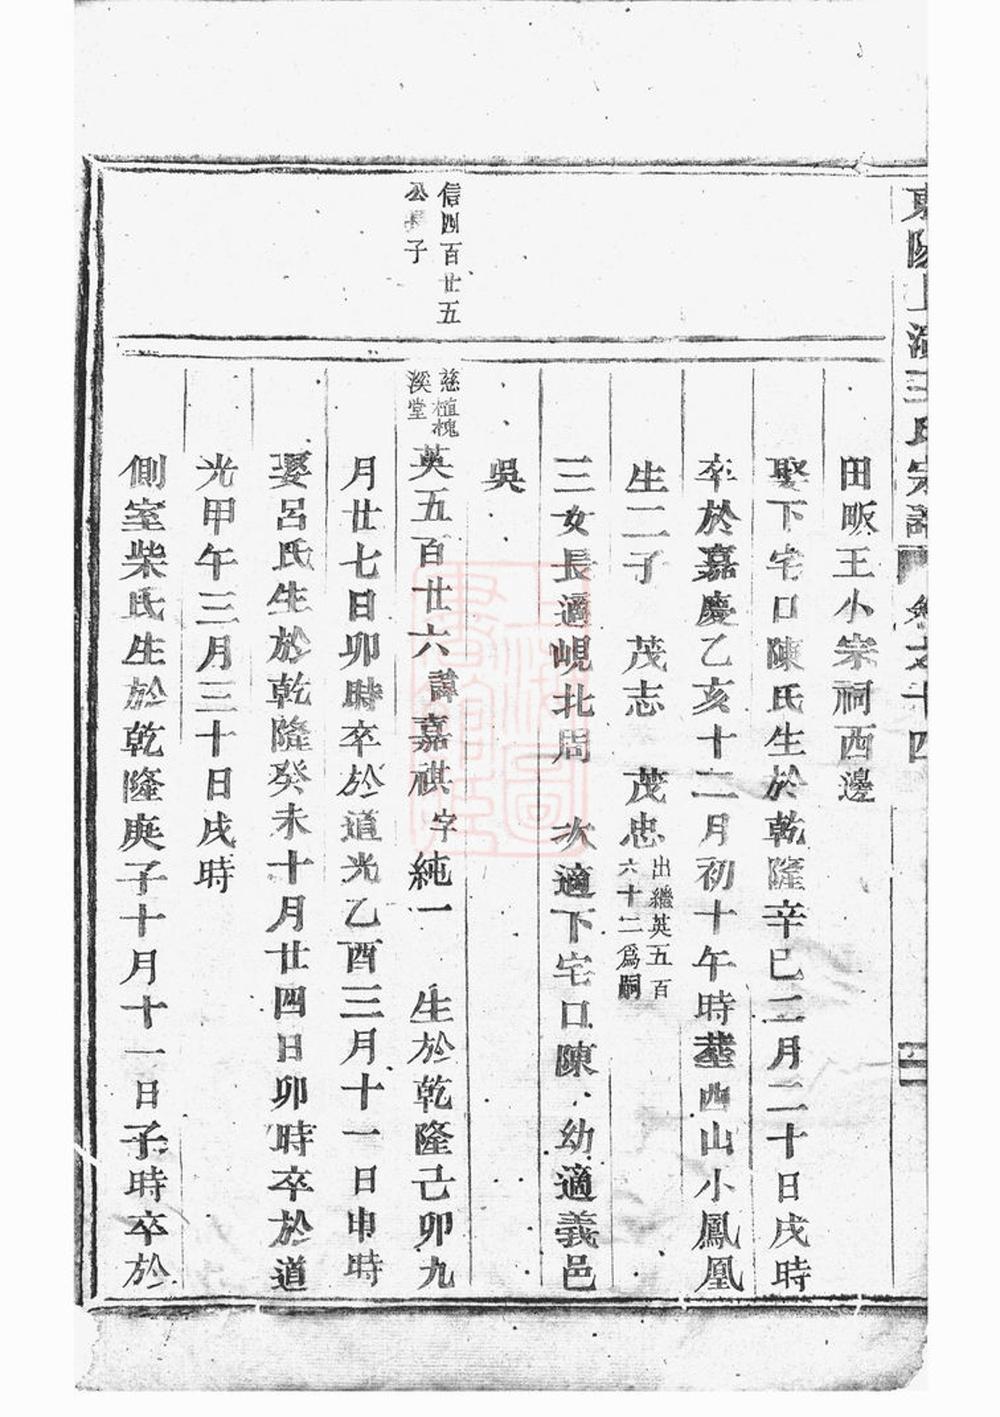 東陽上湖王氏宗譜 卷之十四
田畈王小宗祠西邊
娶下宅口陳氏生於乾隆辛巳二月二十日戌時
卒於嘉慶乙亥十二月初十午時塟西山小鳳凰
生二子 茂志 茂忠出繼英五百
六十二爲嗣
三女長適峴北周 次適下宅口陳 幼適義邑
吳
信四百廿五
公長子
慈植槐
溪堂
英五百廿六諱嘉祺字純一 生於乾隆己卯九
月廿七日卯時卒於道光乙酉三月十一日申時
娶呂氏生於乾隆癸未十月廿四日卯時卒於道
光甲午三月三十日戌時
側室柴氏生於乾隆庚子十月十一日子時卒於